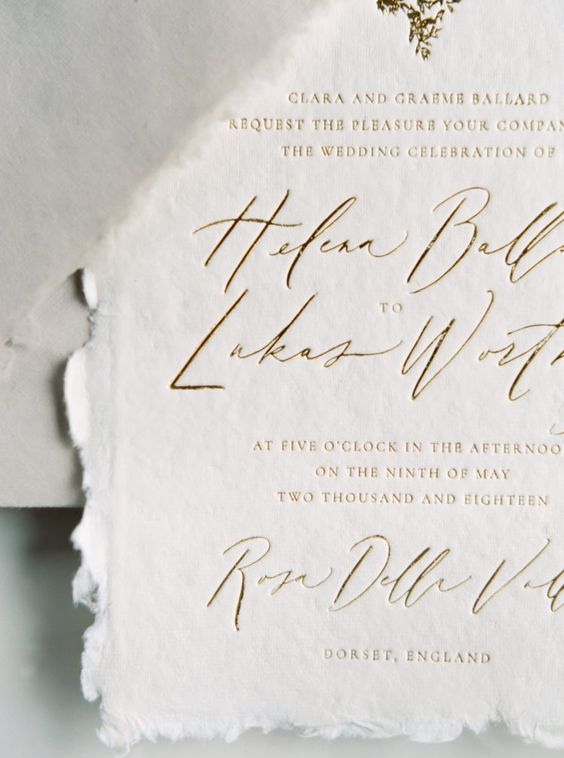 CLARA AND GRAEME BALLARD
REQUEST THE PLEASURE YOUR COMPAN
THE WEDDING CELEBRATION OF
Helena Balla
TO
Lukas Worth
AT FIVE O'CLOCK IN THE AFTERNOO
ON THE NINTH OF MAY
TWO THOUSAND AND EIGHTEEN
Rosa Della Vall
DORSET, ENGLAND